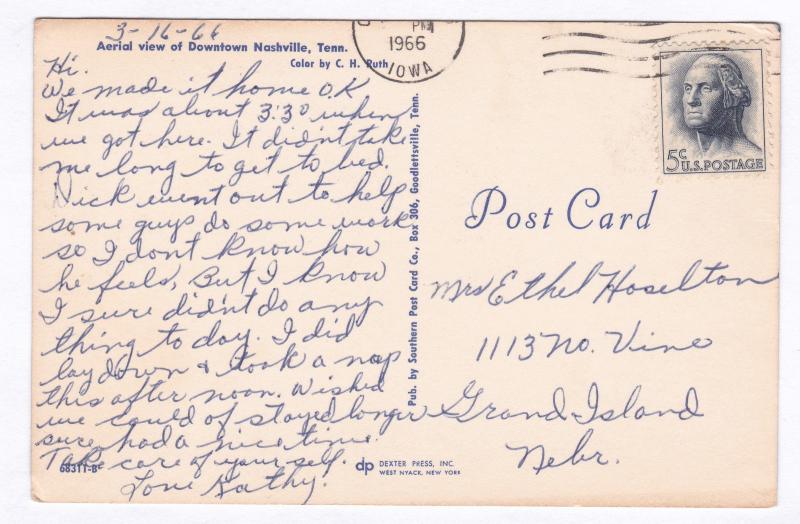 3-16-66
Aerial view of Downtown Nashville, Tenn.
Color by C. H. Ruth
Hi.
We made it home O.K
It was about 3:30 when
we got here. It didn't take
me long to get to bed.
Dick went out to help
some guys do some work
so I dont know how
he feels, But I know
I sure didn't do any
thing to day. I did
lay down & took a nap
this after noon. Wished
we could of stayed longer
sure had a nice time.
Take care of your self.
Love Kathy.
68311-B
Pub. by Southern Post Card Co., Box 306, Goodlettsville, Tenn.
dp DEXTER PRESS, INC.
WEST NYACK, NEW YORK
PM
1966
IOWA
5c
U.S. POSTAGE
Post Card
Mrs Ethel Hoselton
1113 No. Vine
Grand-Island
Nebr.